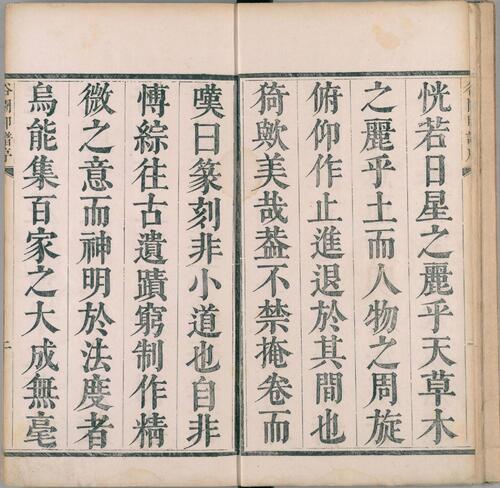 恍若日星之麗乎天草木
之麗乎土而人物之周旋
俯仰作止進退於其間也
猗歟美哉葢不禁掩卷而
嘆曰篆刻非小道也自非
博綜往古遺蹟窮制作精
微之意而神明於法度者
烏能集百家之大成無毫
印譜序